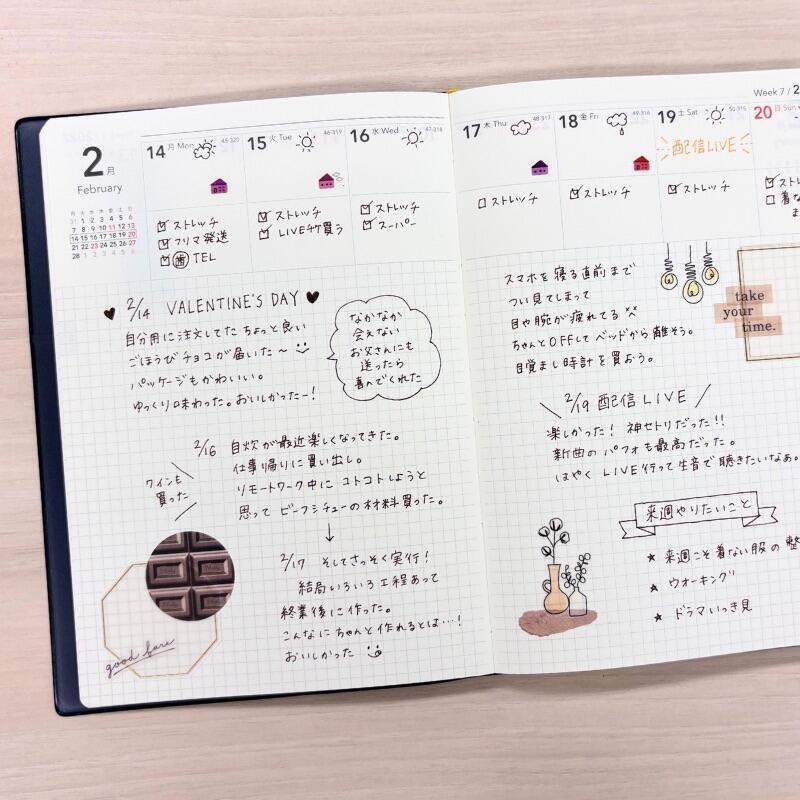 2月
February
月 火 水 木 金 土 日
31 1 2 3 4 5 6
7 8 9 10 11 12 13
14 15 16 17 18 19 20
21 22 23 24 25 26 27
28 1 2 3 4 5 6
14 月 Mon 45-320
☑ ストレッチ
☑ フリマ発送
☑ 歯 TEL
15 火 Tue 46-319
☑ ストレッチ
☑ LIVEチケ買う
16 水 Wed 47-318
☑ ストレッチ
☑ スーパー
♥ 2/14 VALENTINE'S DAY ♥
自分用に注文してた ちょっと良い
ごほうびチョコが届いた〜
パッケージもかわいい。
ゆっくり味わった。おいしかったー!
なかなか
会えない
お父さんにも
送ったら
喜んでくれた
2/16 自炊が最近楽しくなってきた。
仕事帰りに買い出し。
リモートワーク中に コトコトしようと
思って ビーフシチューの材料買った。
ワインも
買った
↓
2/17 そしてさっそく実行!
結局いろいろ工程あって
終業後に作った。
こんなにちゃんと作れるとは…!
おいしかった
good fare
Week 7 / 2
17 木 Thu 48-317
□ ストレッチ
18 金 Fri 49-316
☑ ストレッチ
19 土 Sat 50-315
配信LIVE
☑ ストレッチ
20 日 Sun
☑ スト
□ 着な
ま
スマホを寝る直前まで
つい見てしまって
目や腕が疲れてる
ちゃんとOFFしてベッドから離そう。
目覚まし時計を買おう。
take
your
time.
2/19 配信 LIVE
楽しかった! 神セトリだった!!
新曲の パフォも最高だった。
はやく LIVE行って生音で聴きたいなぁ。
来週やりたいこと
★ 来週こそ着ない服の整
★ ウォーキング
★ ドラマいっき見